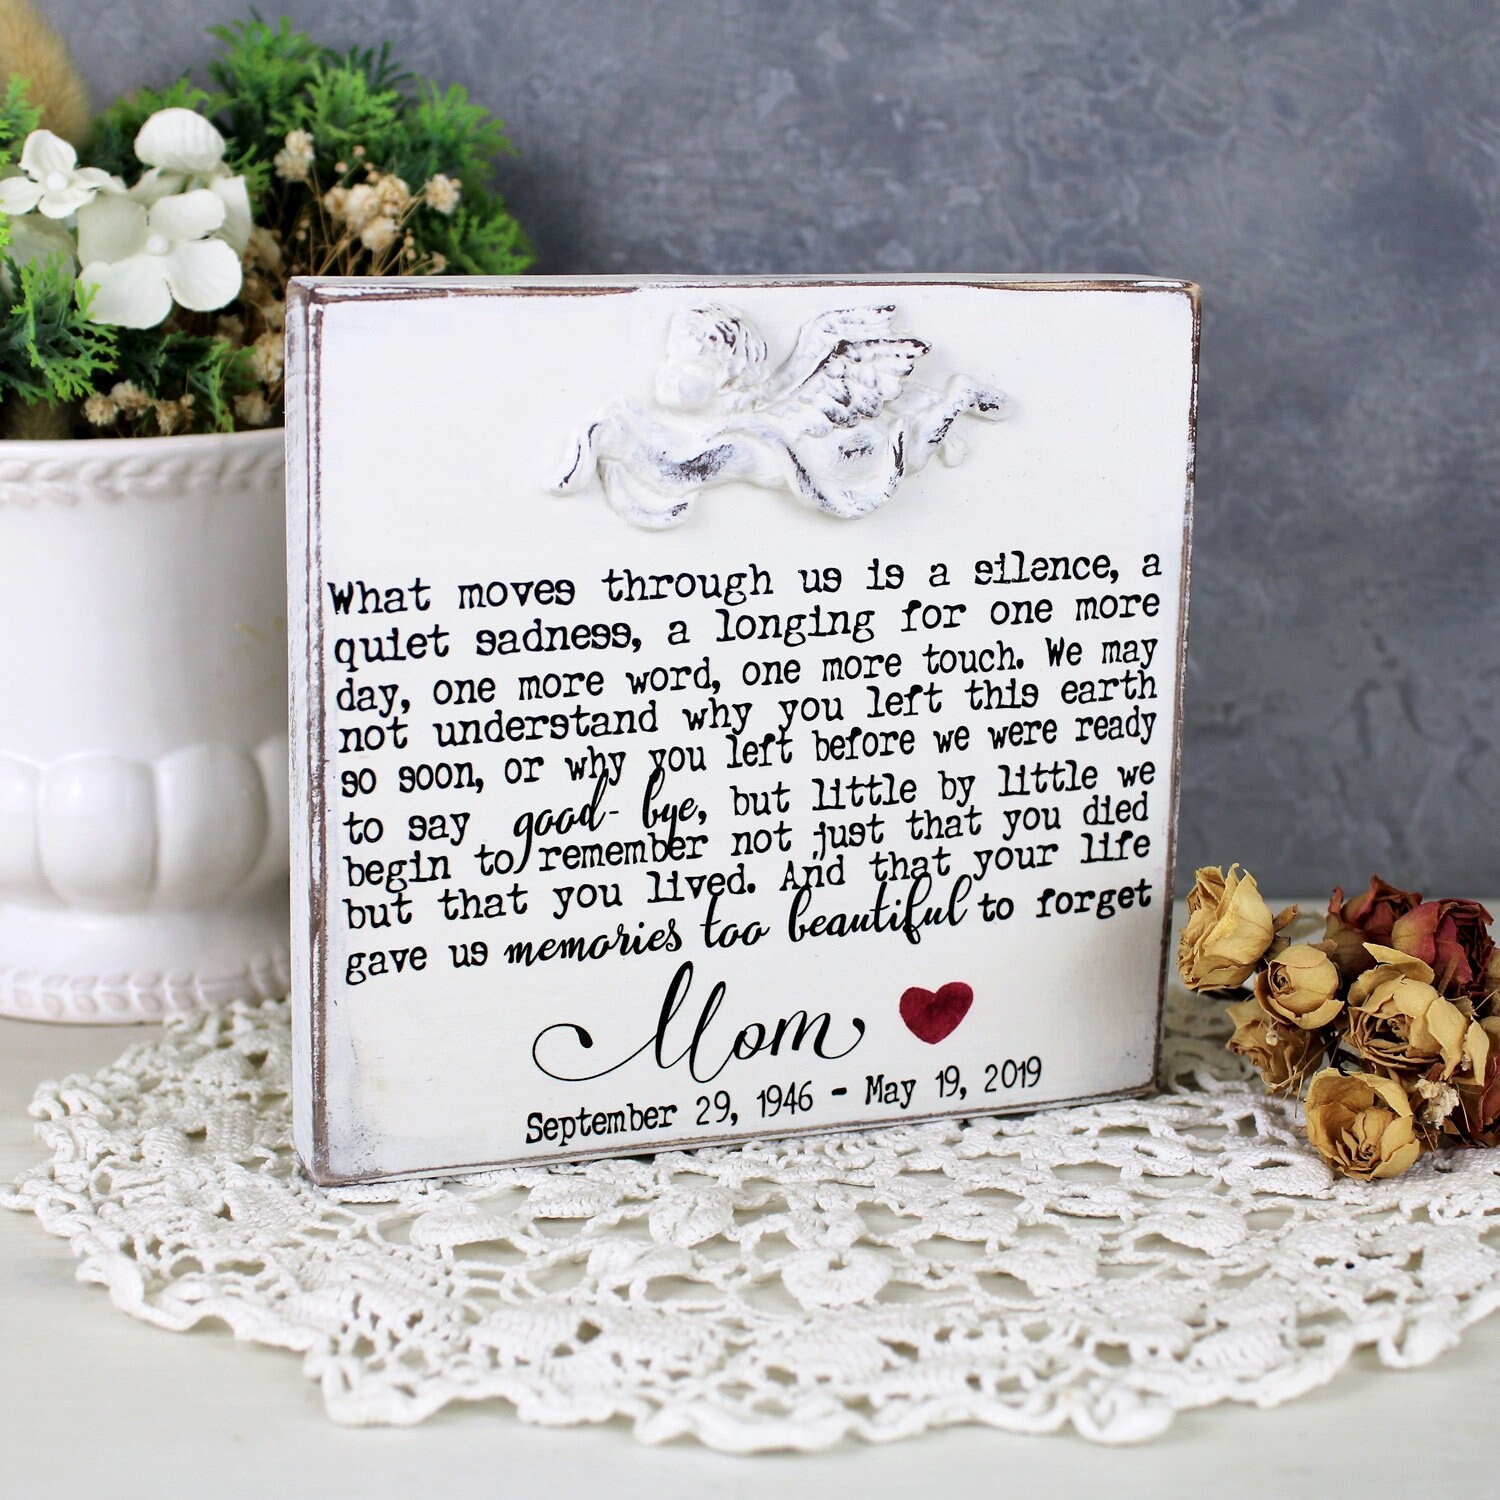 What moves through us is a silence, a
quiet sadness, a longing for one more
day, one more word, one more touch. We may
not understand why you left this earth
so soon, or why you left before we were ready
to say good-bye, but little by little we
begin to remember not just that you died
but that you lived. And that your life
gave us memories too beautiful to forget
Mom
September 29, 1946 - May 19, 2019